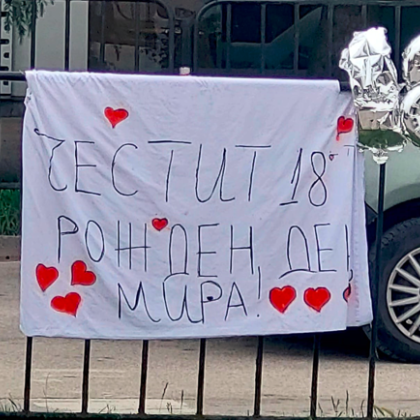 ЧЕСТИТ 18ТИ
РОЖДЕН ДЕН
МИРА!